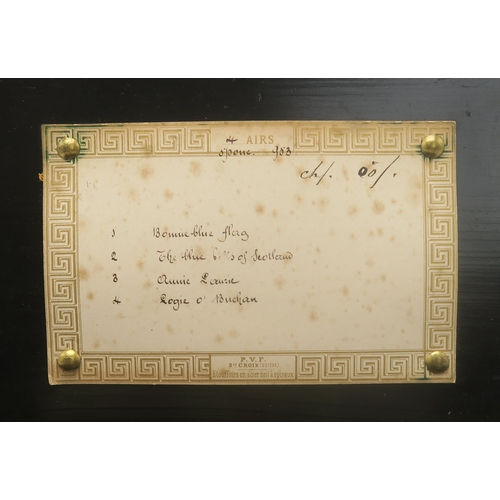 4 AIRS
1 Bonnie blue flag
2 The blue bells of Scotland
3 Annie Laurie
4 Logie o' Buchan
P.V.F.
Ste CROIX (SUISSE)